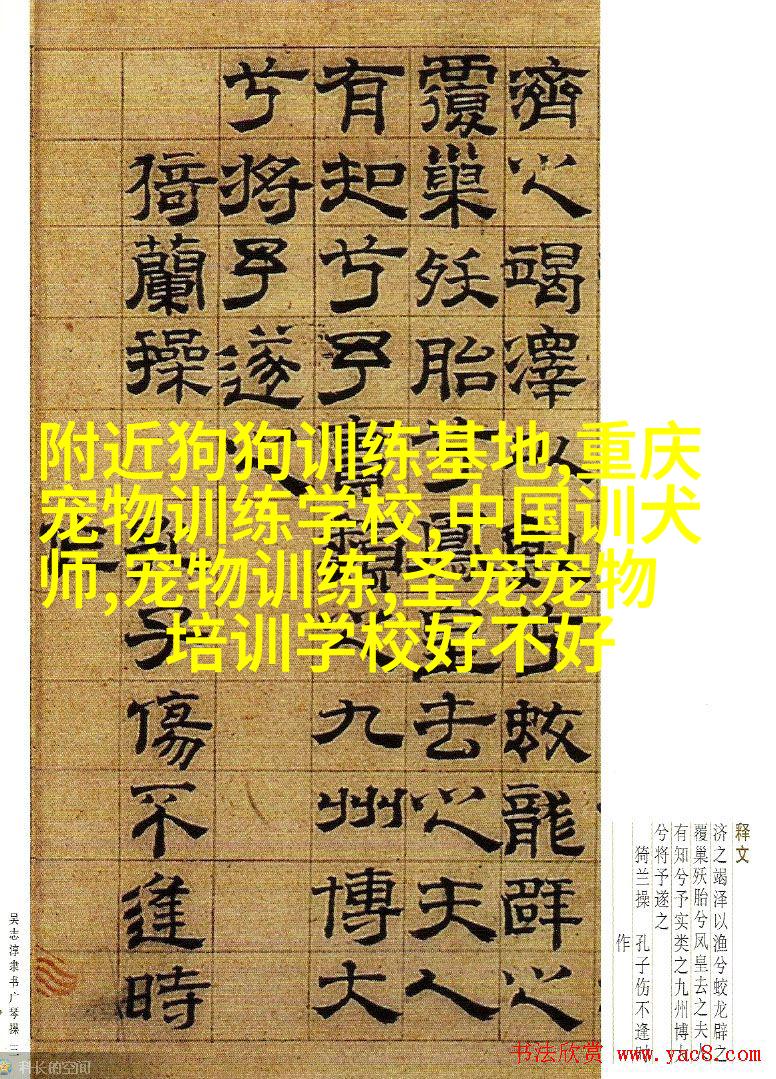 濟之竭澤
覆巢殀胎
有知兮予
兮將予遂之
猗蘭操
蛟龍辟之
皇去之夫人
之九州博大
子傷不逢時
作
附近狗狗训练基地,重庆
宠物训练学校,中国训犬
师,宠物训练,圣宠宠物
培训学校好不好
释文
济之竭泽以渔兮蛟龙辟之
覆巢殀胎兮凤皇去之夫人
有知兮予实类之九州博大
兮将予遂之
猗兰操 孔子伤不逢时
作
吴志淳隶书广琴操 三
科长的空间
书法欣赏 www.yac8.com